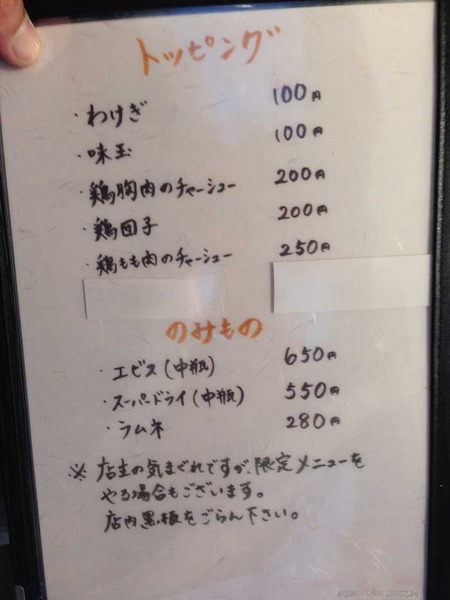 トッピング
・わけぎ 100円
・味玉 100円
・鶏胸肉のチャーシュー 200円
・鶏団子 200円
・鶏もも肉のチャーシュー 250円
のみもの
・エビス(中瓶) 650円
・スーパードライ(中瓶) 550円
・ラムネ 280円
※店主の気まぐれですが、限定メニューを
やる場合もございます。
店内黒板をごらん下さい。